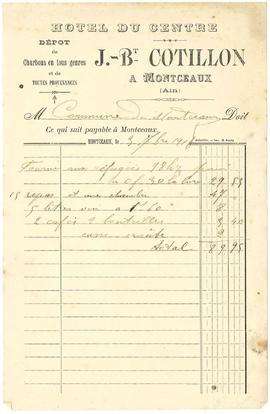 HOTEL DU CENTRE
DÉPOT
de
Charbons en tous genres
et de
TOUTES PROVENANCES
J.-Bt COTILLON
A MONTCEAUX
(Ain)
M Commune de Montceaux Doit
Ce qui suit payable à Montceaux.
MONTCEAUX, le 3 7bre 19
Fourni aux réfugiés 98 kg
à 0f 30 la livre 29
15 repas et une chambre 47
5 litres vin a 1f 60 8
2 cafés 2 bouteilles 2 40
casse croûte 3
total 89 95